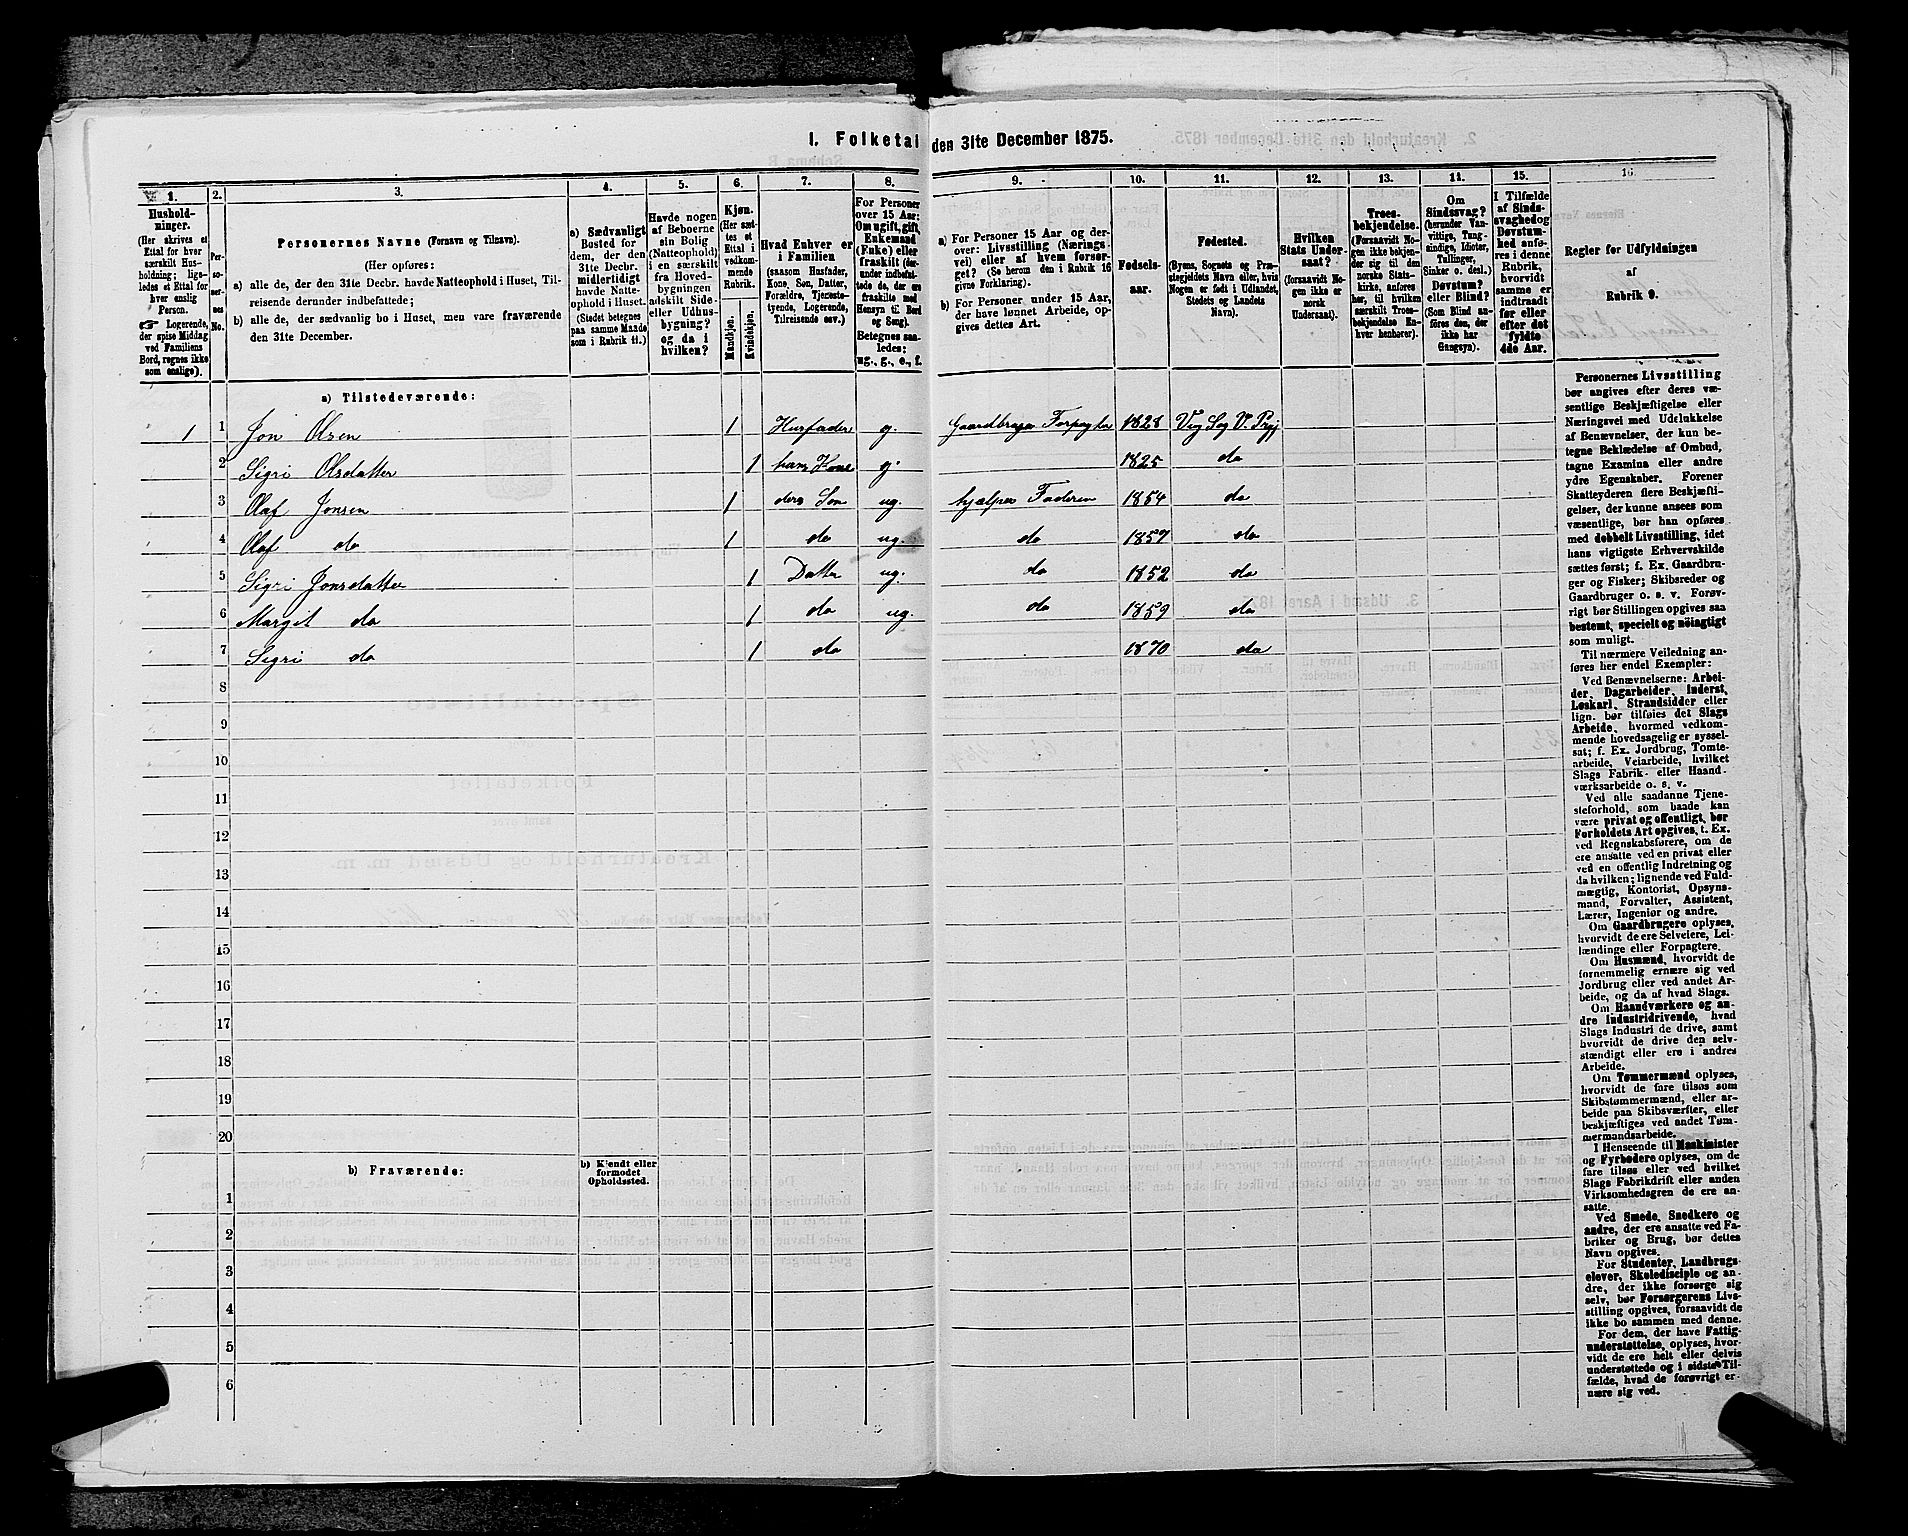 I. Folketal den 31te December 1875.
1. 2. 3. 4. 5. 6. 7. 8. 9. 10. 11. 12. 13. 14. 15. 16.
Hushold-
ninger.
(Her skrives et
Ettal for hver
særskilt Hus-
holdning; lige-
ledes et Ettal for
hver enslig
Person.
☞ Logerende,
der spise Middag
ved Familiens
Bord, regnes ikke
som enslige).
Per-
soner-
nes
No.
Personernes Navne (Fornavn og Tilnavn).
(Her opføres:
a) alle de, der den 31te Decbr. havde Natteophold i Huset, Til-
reisende derunder indbefattede;
b) alle de, der sædvanlig bo i Huset, men vare fraværende
den 31te December.
a) Sædvanligt
Bosted for
dem, der den
31te Decbr.
midlertidigt
havde Natte-
ophold i Huset.
(Stedet betegnes
paa samme Maade
som i Rubrik 11.)
Havde nogen
af Beboerne
sin Bolig
(Natteophold)
i en særskilt
fra Hoved-
bygningen
adskilt Side-
eller Udhus-
bygning?
og da i
hvilken?
Kjøn.
(Her sæt-
tes et
Ettal i
vedkom-
mende
Rubrik.
Mandkjøn.
Kvindekjøn.
Hvad Enhver er
i Familien
(saasom Husfader,
Kone, Søn, Datter,
Forældre, Tjeneste-
tyende, Logerende,
Tilreisende osv.)
For Personer
over 15 Aar:
Om ugift, gift,
Enkemand
(Enke) eller
fraskilt (der-
under indbefat-
tede de, der ere
fraskilte med
Hensyn til Bord
og Seng).
Betegnes saa-
ledes:
ug., g., e., f.
a) For Personer 15 Aar og der-
over: Livsstilling (Nærings-
vei) eller af hvem forsør-
get? (Se herom den i Rubrik 16
givne Forklaring).
b) For Personer under 15 Aar,
der have lønnet Arbeide, op-
gives dettes Art.
Fødsels-
aar.
Fødested.
(Byens, Sognets og Præ-
stegjeldets Navn eller, hvis
Nogen er født i Udlandet,
Stedets og Landets
Navn).
Hvilken
Stats Under-
saat?
(forsaavidt No-
gen ikke er
norsk
Undersaat).
Troes-
bekjendelse.
(Forsaavidt No-
gen ikke bekjen-
der sig til den
norske Stats-
kirke, anføres
her, til hvilken
særskilt Troes-
bekjendelse En-
hver henhører).
Om
Sindssvag?
(herunder Van-
vittige, Tung-
sindige, Idioter,
Tullinger,
Sinker o. desl.)
Døvstum?
eller Blind?
(Som Blind an-
føres den, der
ikke har
Gangsyn).
I Tilfælde
af Sinds-
svaghed og
Døvstum-
hed anfø-
res i denne
Rubrik,
hvorvidt
samme er
indtraadt
før eller
efter det
fyldte
4de Aar.
Regler for Udfyldningen
af
Rubrik 9.
a) Tilstedeværende:
1 1 Jon Olsen 1 Husfader g. Gaardbruger Forpagter 1828 Vig Sog V. Prgj
2 Sigri Olsdatter 1 hans Kone g. 1825 do
3 Olaf Jonsen 1 deres Søn ug. hjælper Faderen 1854 do
4 Olaf do 1 do ug. do 1857 do
5 Sigri Jonsdatter 1 Datter ug. do 1852 do
6 Margit do 1 do ug. do 1859 do
7 Sigri do 1 do 1870 do
8
9
10
11
12
13
14
15
16
17
18
19
20
b) Fraværende:
b) Kjendt eller
formodet
Opholdssted.
1
2
3
4
5
6
Personernes Livsstilling
bør angives efter deres væ-
sentlige Beskjæftigelse eller
Næringsvei med Udelukkelse
af Benævnelser, der kun be-
tegne Beklædelse af Ombud,
tagne Examina eller andre
ydre Egenskaber. Forener
Skatteyderen flere Beskjæfti-
gelser, der kunne ansees som
væsentlige, bør han opføres
med dobbelt Livsstilling, idet
hans vigtigste Erhvervskilde
sættes først; f. Ex. Gaardbru-
ger og Fisker; Skibsreder og
Gaardbruger o. s. v. Forøv-
rigt bør Stillingen opgives saa
bestemt, specielt og nöiagtigt
som muligt.
Til nærmere Veiledning an-
føres her endel Exempler:
Ved Benævnelserne: Arbei-
der, Dagarbeider, Inderst,
Løskarl, Strandsidder eller
lign. bør tilføies det Slags
Arbeide, hvormed vedkom-
mende hovedsagelig er syssel-
sat; f. Ex. Jordbrug, Tomte-
arbeide, Veiarbeide, hvilket
Slags Fabrik- eller Haand-
værksarbeide o. s. v.
Ved alle saadanne Tjene-
steforhold, som baade kan
være privat og offentligt, bør
Forholdets Art opgives, t. Ex.
ved Regnskabsførere, om de
ere ansatte ved en privat eller
ved en offentlig Indretning og
da hvilken; lignende ved Fuld-
mægtig, Kontorist, Opsyns-
mand, Forvalter, Assistent,
Lærer, Ingeniør og andre.
Om Gaardbrugere oplyses,
hvorvidt de ere Selveiere, Lei-
lændinge eller Forpagtere.
Om Husmænd, hvorvidt de
fornemmelig ernære sig ved
Jordbrug eller ved andet Ar-
beide, og da af hvad Slags.
Om Haandværkere og an-
dre Industridrivende, hvad
Slags Industri de drive, samt
hvorvidt de drive den selv-
stændigt eller ere i andres
Arbeide.
Om Tømmermænd oplyses,
hvorvidt de fare tilsøs som
Skibstømmermænd, eller ar-
beide paa Skibsværfter, eller
beskjæftiges ved andet Tøm-
mermandsarbeide.
I Henseende til Maskinister
og Fyrbødere oplyses, om de
fare tilsøs eller ved hvilket
Slags Fabrikdrift eller anden
Virksomhedsgren de ere an-
satte.
Ved Smede, Snedkere og
andre, der ere ansatte ved Fa-
briker og Brug, bør dettes
Navn opgives.
For Studenter, Landbrugs-
elever, Skoledisciple og an-
dre, der ikke forsørge sig
selv, bør Forsørgerens Livs-
stilling opgives, forsaavidt de
ikke bo sammen med denne.
For dem, der have Fattig-
understøttelse, oplyses, hvor-
vidt de ere helt eller delvis
understøttede og i sidste Til-
fælde, hvad de forøvrigt er-
nære sig ved.